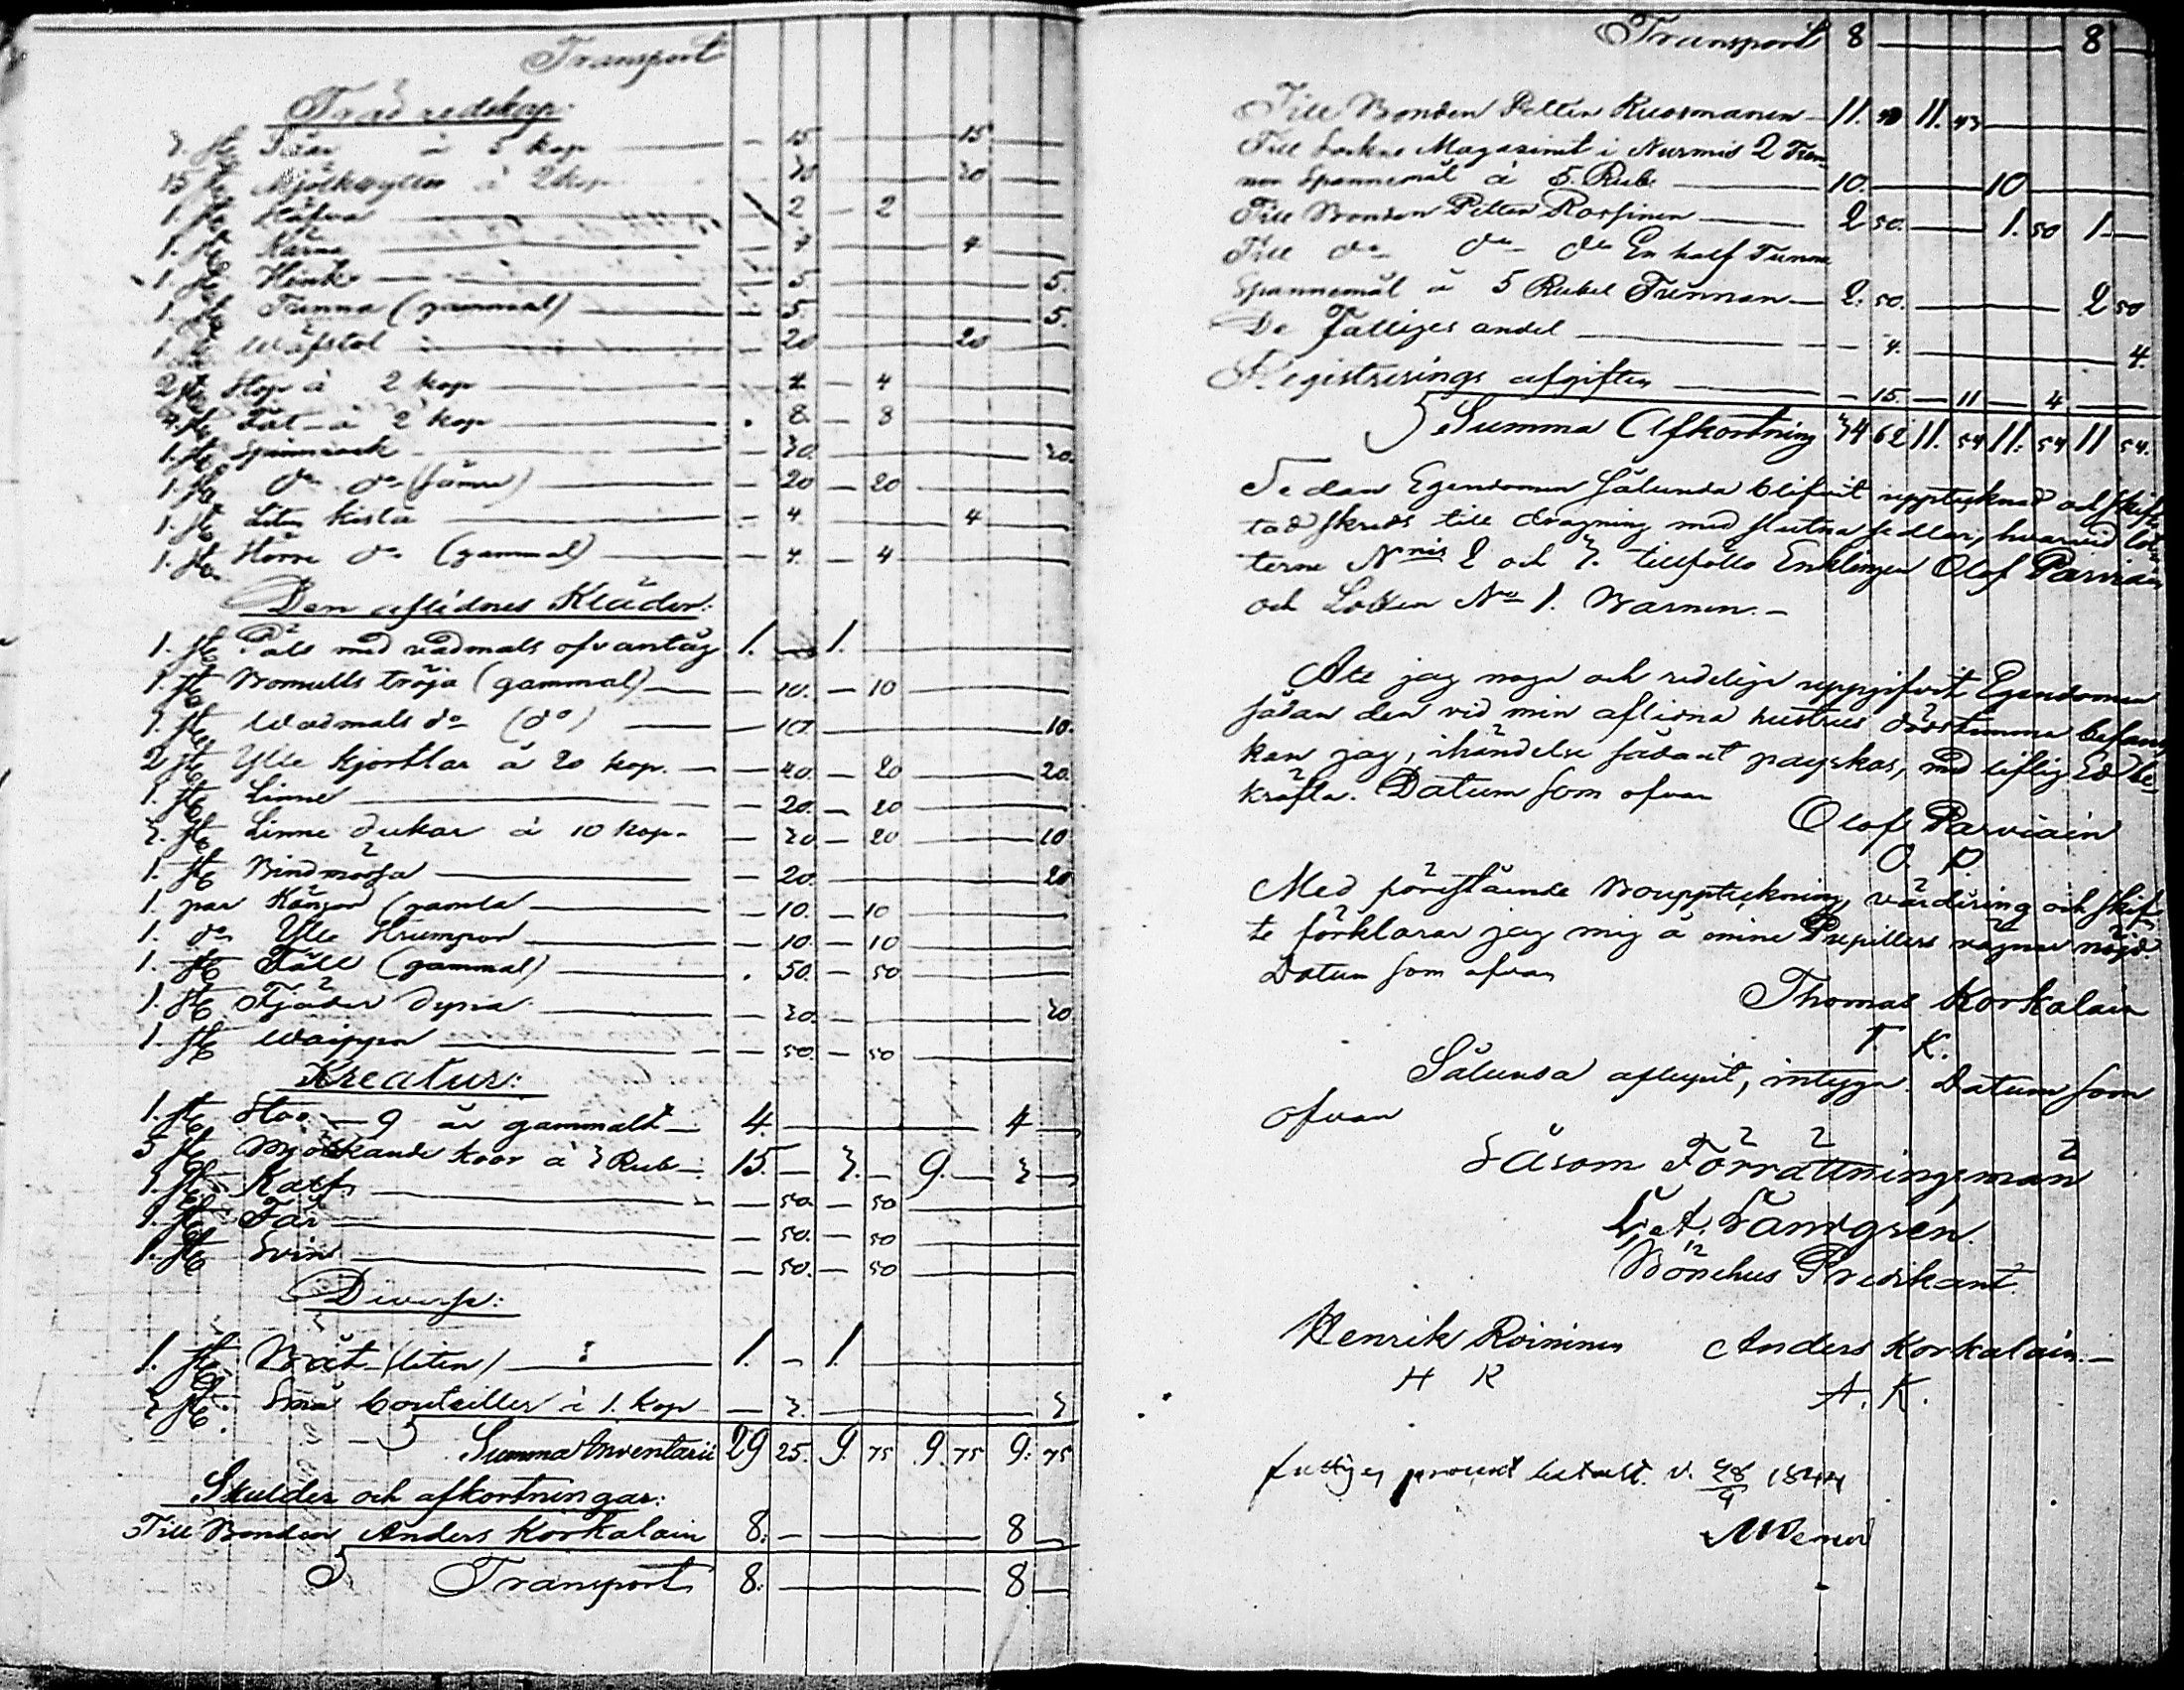 Transport
Träd redskap:
3. st Såar à 5 kop — 15 — 15
15 st Mjölkbyttor à 2 kop — 30 — 30
1. st Stäfva — 2 — 2
1. st Kärna — 4 — 4
1. st Hink — 5 — 5.
1. st Tunna (gammal) — 5. — 5.
1. st Wäfstol — 20 — 20
2 st Stop à 2 kop — 4 — 4
4. st Fat à 2 kop — 8. — 8
1. st Spinnrock — 30. — 30.
1. st do do (sämre) — 20 — 20
1. st Liten kista — 4. — 4
1. st Större do (gammal) — 4. — 4
Den aflidnes Kläder:
1. st Päls med vadmals ofvantåg 1. — 1.
1. st Bomulls tröja (gammal) — 10. — 10
1. st Wadmals do (do) — 10. — 10.
2 st Ylle kjortlar à 20 kop. — 40. — 20 — 20.
1. st Linne — 20. — 20
3. st Linne dukar à 10 kop. — 30 — 20 — 10
1. st Bindmössa — 20. — 20
1. par Kängor (gamla — 10. — 10
1. do Ylle Strumpor — 10. — 10
1. st Fäll (gammal) — 50. — 50
1. st Fjäder dyna — 30. — 30
1. st Waippa — 50. — 50
Kreatur:
1. st Sto — 9 år gammalt — 4. — 4
5 st Mjölkande koor à 3 Rub. 15. — 3. — 9. — 3
1. st Kalf — 50. — 50
1. st Får — 50. — 50
1. st Svin — 50. — 50
Diverse:
1. st Båt (liten) — 1. — 1.
3 st. Små bouteiller à 1. kop — 3. — 3
Summa Inventarii 29 25. 9. 75 9. 75 9. 75
Skulder och afkortningar:
Till Bonden Anders Korkalain 8. — 8
Transport 8. — 8
Transport 8 — 8
Till Bonden Petter Kuosmanen — 11. 43 11. 43
Till Sockne Magasinet i Nurmis 2 Tun-
nor Spannemål à 5. Rub. — 10. — 10
Till Bonden Petter Rossinen — 2 50. — 1. 50 1.
Till do do do En half Tunna
Spannemål à 5 Rubel Tunnan — 2. 50. — 2 50
De Fattiges andel — 4. — 4.
Registrerings afgiften — 15. — 11 — 4
Summa Afkortning 34 62 11. 54 11. 54 11 54.
Sedan Egendomen sålunda blifvit upptecknad och skif-
tad skreds till dragning med slutna sedlar, hvarvid lot-
terne Nris 2 och 3. tillföllo Enklingen Olof Parviain
och Lotten No 1. Barnen.
Att jag noga och redeligen uppgifvit Egendomen
sådan den vid min aflidna hustrus dödstimma befans
kan jag, i händelse sådant påyrkas, med liflig Ed be-
kräfta. Datum som ofvan
Olof Parviain
O. P.
Med förestående Bouppteckning, värdering och skif-
te förklarar jag mig å mine Pupillers vägnar nöjd.
Datum som ofvan
Thomas Korkalain
T. K.
Sålunda aflupit, intyga. Datum som
ofvan
Såsom Förrättningsman
Bönehus Predikant.
Henrik Roininen Anders Korkalain.
H R A. K.
fattiges procent betalt. d. 28/9 1844